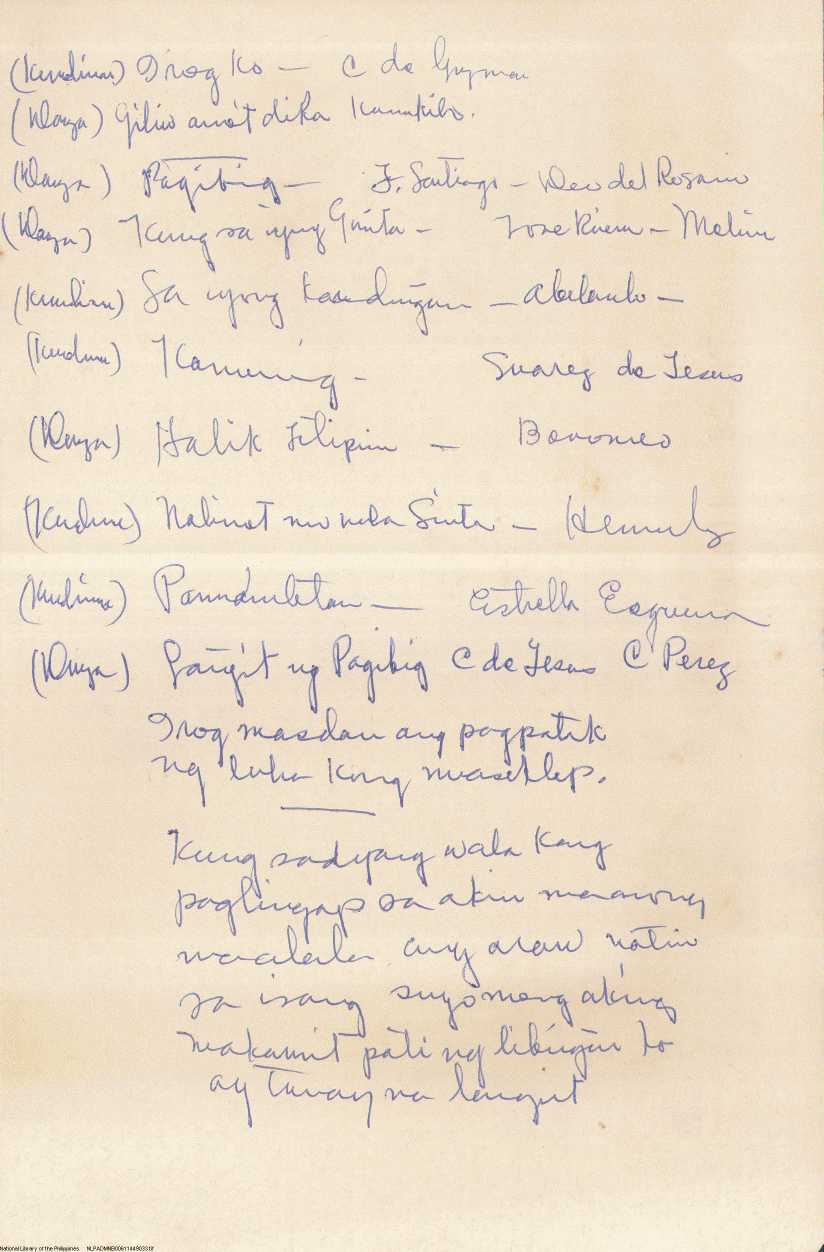 (Kundiman) Irog Ko — C de Guzman
(Danza) Giliw ano't dika Kumikibo.
(Danza) Pagibig — F. Santiago — Deo del Rosario
(Danza) Kung sa iyong Gunita — Jose Rivera — Molina
(Kundiman) Sa iyong Kandungan — Abelardo —
(Kundiman) Kamuning — Suarez de Jesus
(Danza) Halik Filipina — Boromeo
(Kundiman) Nalimot mo na ba Sinta —
(Kundiman) — Estrella Esguerra
(Danza) Langit ng Pagibig C de Jesus C Perez
Irog masdan ang pagpatak
ng luha Kong masaklap.
Kung sadyang wala Kang
paglingap sa akin maanong
maalala ang araw natin
sa isang suyo mong aking
makamit pati ng libingan ko
ay Tunay na langit
National Library of the Philippines